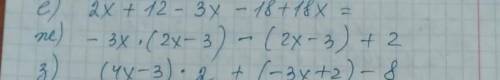 е) 2x + 12 - 3x - 18 + 18x =
ж) - 3x · (2x - 3) - (2x - 3) + 2
з) (4x - 3) · 2 + (-3x + 2) - 8